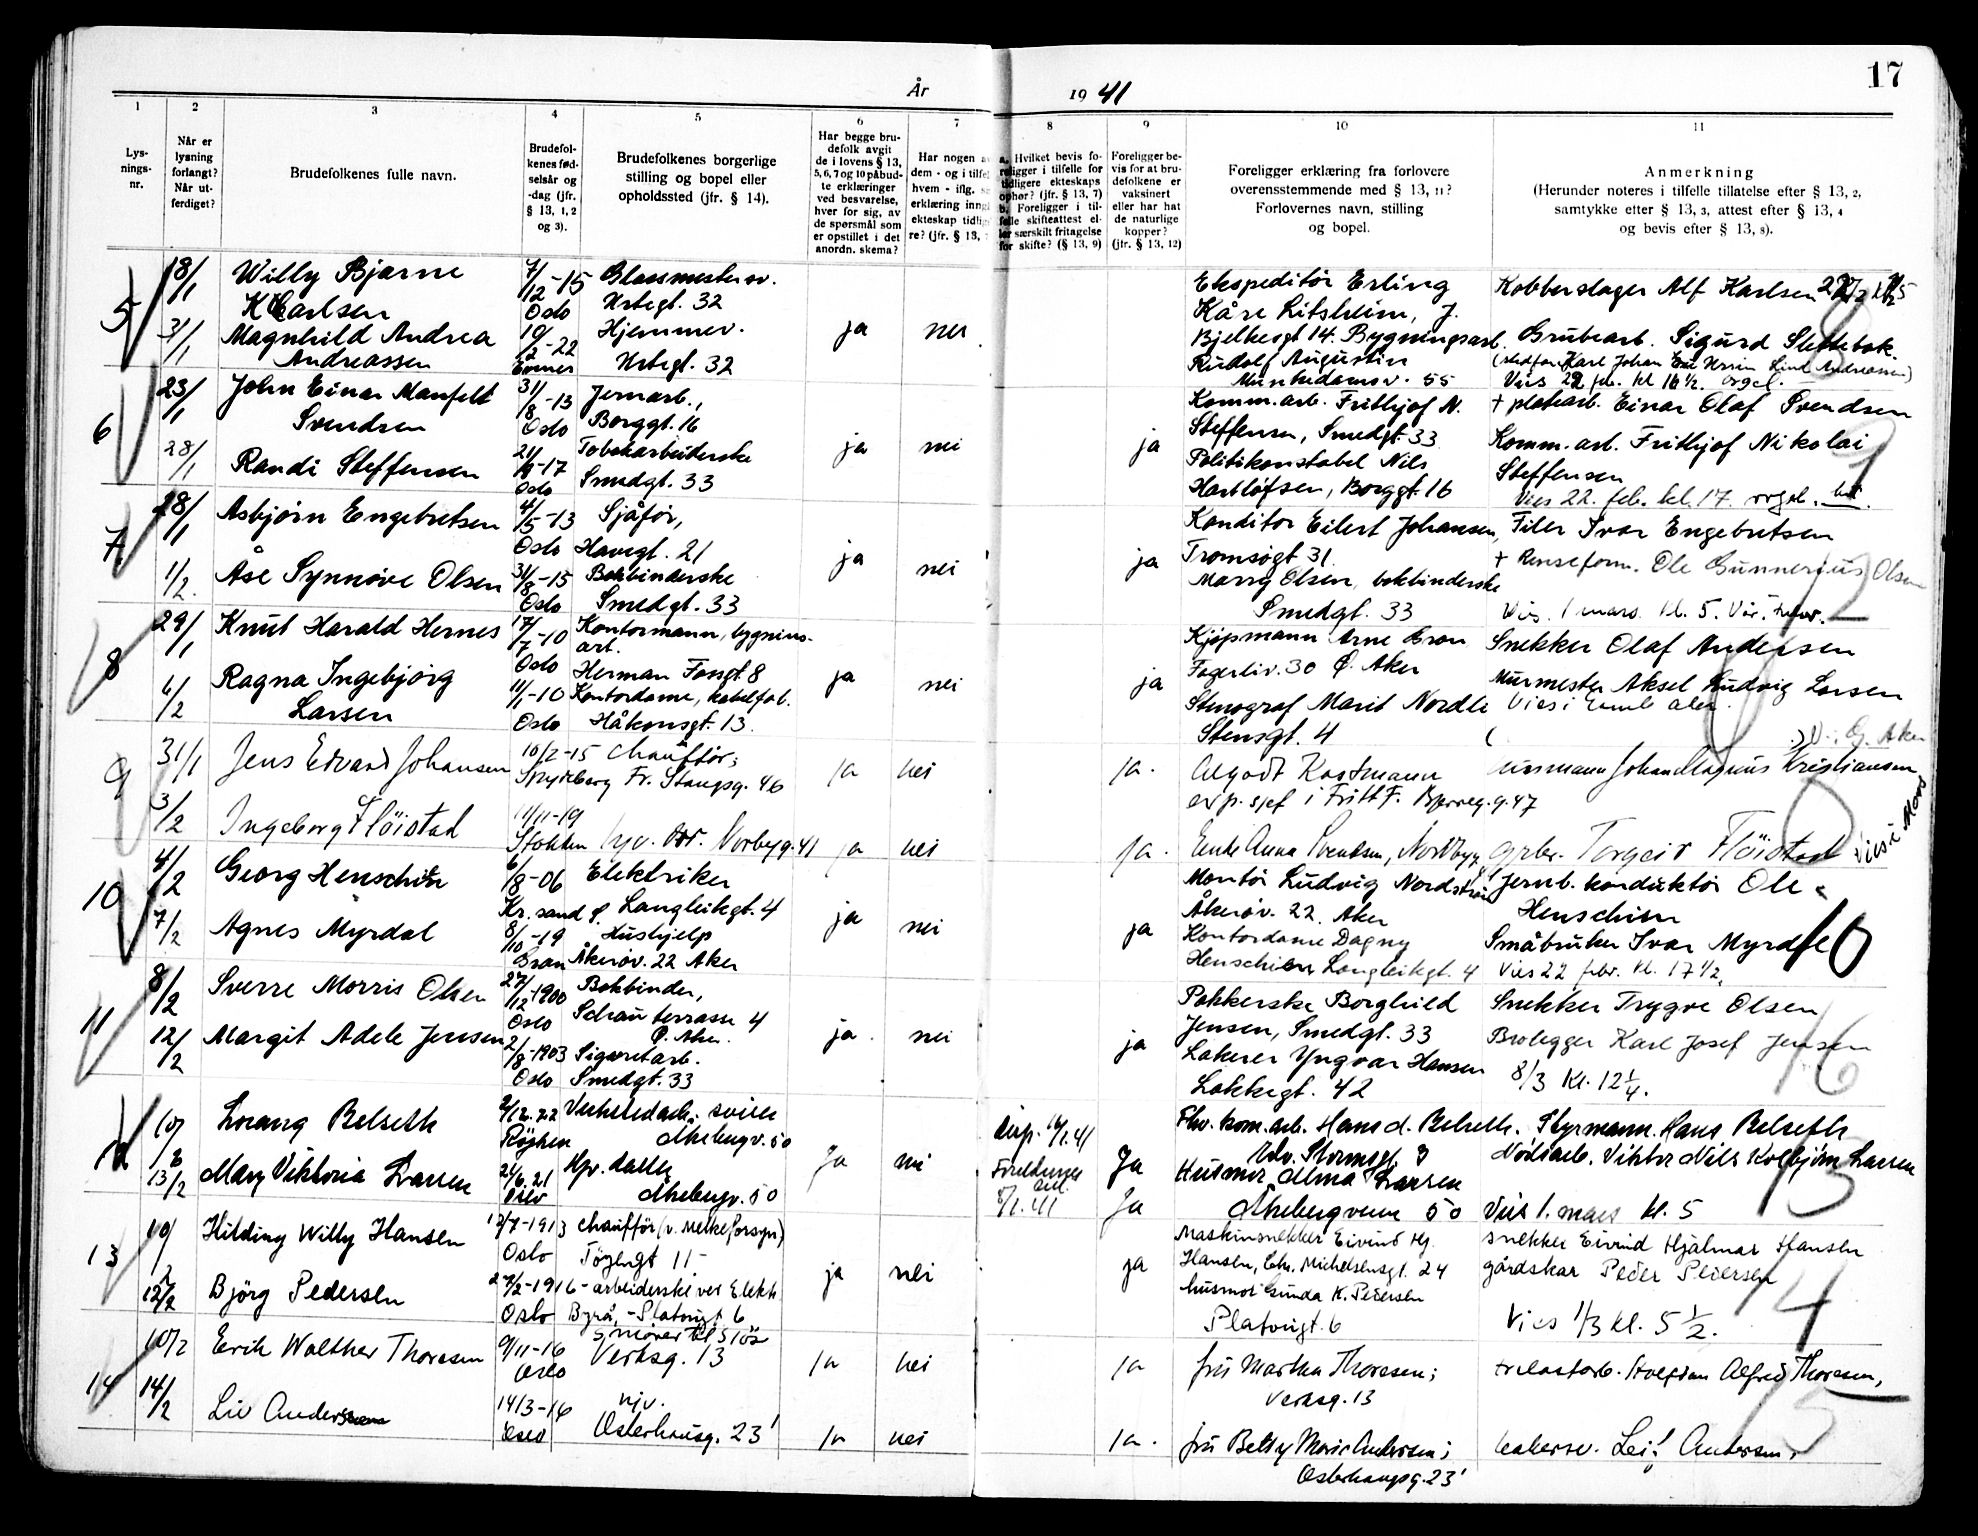 17
År 1941
1
2
3
4
5
6
7
8
9
10
11
Lys-
nings-
nr.
Når er
lysning
forlangt?
Når ut-
ferdiget?
Brudefolkenes fulle navn.
Brudefol-
kenes fød-
selsår og
-dag (jfr.
§ 13, 1, 2
og 3).
Brudefolkenes borgerlige
stilling og bopel eller
opholdssted (jfr. § 14).
Har begge bru-
defolk avgit
de i lovens § 13,
5, 6, 7 og 10 påbud-
te erklæringer
ved besvarelse,
hver for sig, av
de spørsmål som
er opstillet i det
anordn. skema?
Har nogen a
dem - og i tilfel
hvem - iflg.
erklæring inng
ekteskap tidlig
re? (jfr. § 13, 7
a. Hvilket bevis fo-
religger i tilfelle for
tidligere ekteskaps
ophør? (jfr. § 13, 7)
b. Foreligger i til-
felle skifteattest el-
ler særskilt fritagelse
for skifte? (§ 13, 9)
Foreligger be-
vis for at bru-
defolkene er
vaksinert
eller har hat
de naturlige
kopper?
(jfr. § 13, 12)
Foreligger erklæring fra forlovere
overensstemmende med § 13, 11?
Forlovernes navn, stilling
og bopel.
Anmerkning
(Herunder noteres i tilfelle tillatelse efter § 13, 2,
samtykke efter § 13, 3, attest efter § 13, 4
og bevis efter § 13, 8).
5
18/1
Willy Bjarne
Karlsen
7/12-15
Oslo
Glassmestersv.
Urtegt. 32
31/1
Magnhild Andrea
Andreassen
19/2-22
Evenes
Hjemmev.
Urtegt. 32
ja
nei
Ekspeditør Erling
Kåre Litsheim, J.
Bjelkesgt 14. Bygningsarb.
Rudolf Augustin
Munkedamsv. 55
Kobberslager Alf Karlsen
Grubearb. Sigurd Slettebak.
Vies 22 feb. kl 16½. orgel.
8
6
23/1
John Einar Manfeld
Svendsen
31/8-13
Oslo
Jernarb.,
Borggt. 16
28/1
Randi Steffensen
21/9-17
Oslo
Tobakarbeiderske
Smedgt. 33
ja
nei
ja
Komm.arb. Frithjof N.
Steffensen, Smedgt 33
Politikonstabel Nils
Hartløfsen, Borggt. 16
+ platearb. Einar Olaf Svendsen
Komm. arb. Frithjof Nikolai
Steffensen
Vies 22. feb. kl. 17. orgel.
7
28/1
Asbjørn Engebretsen
4/5-13
Oslo
Sjåfør,
Havegt. 21
1/2.
Åse Synnøve Olsen
31/8-15
Oslo
Bokbinderske
Smedgt. 33
ja
nei
ja
Konditor Eilert Johansen,
Tromsøgt 31.
Marry Olsen, bokbinderske
Smedgt. 33
Filer Ivar Engebretsen
+ Renseform. Ole Gunnerius Olsen
Vies. 1 mars. kl. 5.
12
8
29/1
Knut Harald Hernes
17/7-10
Oslo
Kontormann, bygnins-
art.
Herman Fossgt. 8
6/2
Ragna Ingebjørg
Larsen
11/1-10
Oslo
Kontordame, kabelfab.
Håkonsgt. 13
ja
nei
ja
Kjøpmann Arne Gran
Fagerliv. 30 Ø. Aker
Stenograf Marit Nordle
Stensgt. 4
Snekker Olaf Andersen
Murmester Aksel Ludvig Larsen
9
31/1
Jens Edvard Johansen
10/2-15
Spydeberg
Chauffør;
Fr. Stangsg. 46
3/2
Ingeborg Fløistad
11/11-19
Stokken
hjv. Norbyg. 41
ja
nei
ja.
ja
nei
ja.
Algodt Kastmann
exp. sjef i Fritt F. Bjerreg.g. 47
Enke Anna Svendsen, Nordbyg
Johan Magnus Kristiansen
Torgeir Fløistad
Vies i Moss
10
4/2
Georg Henschien
6/8-06
Kr.sand S.
Elektriker
Langleikgt. 4
7/2
Agnes Myrdal
8/10-19
Gran
Hushjelp
Åkerøv. 22 Aker
ja
nei
ja
Montør Ludvig Nordstrøm
Åkerøv. 22. Aker
Kontordame Dagny
Henschien Langleikgt. 4
Jernb. konduktør Ole
Henschien
Småbruker Ivar Myrdal
Vies 22 febr. kl. 17½.
10
11
8/2
Sverre Morris Olsen
27/12-1900
Oslo
Bokbinder,
Schau terrasse 4
Ø. Aker.
12/2
Margit Adele Jensen
2/8-1903
Oslo
Sigaretarb.
Smedgt. 33
ja.
nei
ja
Pakkerske Borghild
Jensen, Smedgt. 33
Lakerer Yngvar Hansen
Lakkegt. 42
Snekker Trygve Olsen
Brolegger Karl Josef Jensen
8/3 Kl. 12¼.
16
12
10/2
Lorang Belseth
2/12.22
Røyken
Åkebergv. 50
13/2
Mary Viktoria Larsen
24/6.21
Oslo
Hjv. datter
Åkebergv. 50
Ja
nei
disp. 16/1.41
8/1.41
Ja
Ja
Fhv. kom.arb. Hans d. Belseth.
Edv. Stormsgt. 3
Husmor Alma Larsen
Åkebergveien 50
Styrmann. Hans Belseth
Nødsarb. Viktor Nils Kolbjørn Larsen
Vies 1. mars kl. 5
13
13
10/2
Hilding Willy Hansen
12/7-1913
Oslo
chauffør (v. Melkeforsyn)
Töyengt 11-
12/2
Björg Pedersen
27/2-1916
Oslo
- arbeiderske ved Elektr.
Byrå, - Platougt 6
ja
nei
ja
Maskinsnekker Eivind Hj.
Hansen, Chr. Michelsensgt. 24
husmor Gunda K. Pedersen
Platougt. 6
snekker Eivind Hjalmar Hansen
gårdskar Peder Pedersen
Vies 1/3 kl. 5½.
14
14
10/2
Erik Walther Thoresen
9/11-16
Oslo
Smører
Verksg. 13
14/2
Liv Andersen
14/3-16
Oslo
hjv.
Osterhausg. 23'
ja
nei
ja
ja
nei
ja.
fru Martha Thoresen;
Verksg. 13
fru Betsy Marie Andersen;
Osterhausg. 23'
trelastarb. Holfdan Alfred Thoresen,
Leif Andersen.
15